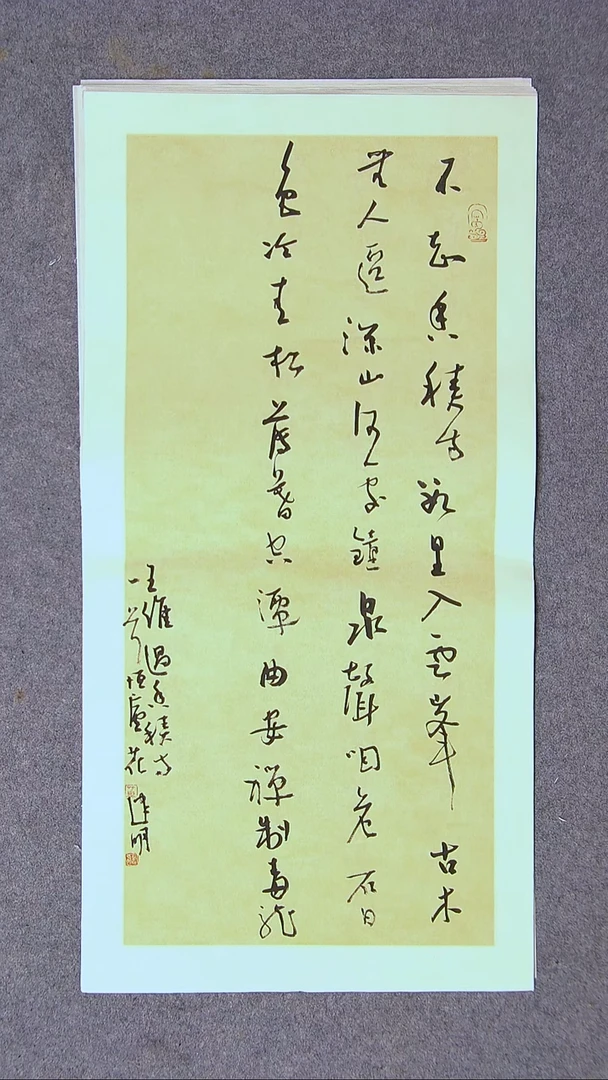 不知香積寺數里入雲峯古木
無人逕深山何處鐘泉聲咽危石日
色冷青松薄暮空潭曲安禪制毒龍
王維過香積寺
恒廬花
建明